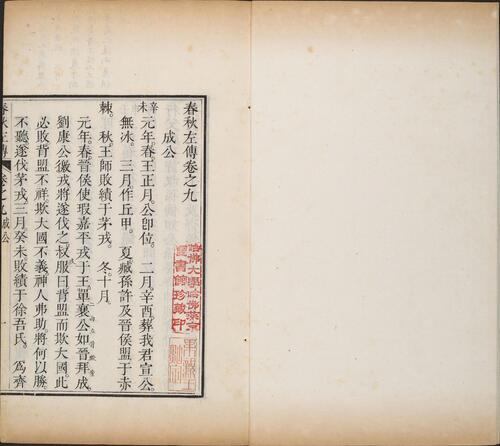 春秋左傳卷之九
成公
辛未
元年春王正月。公卽位。二月辛酉葬我君宣公。
無冰。三月。作丘甲。夏臧孫許及晉侯盟于赤
棘。秋。王師敗績于茅戎。冬。十月。
元年春。晉侯使瑕嘉平戎于王。單襄公如晉拜成。
劉康公徼戎將遂伐之。叔服曰。背盟而欺大國。此
必敗。背盟不祥。欺大國不義。神人弗助。將何以勝。
不聽。遂伐茅戎。三月癸未。敗績于徐吾氏。爲齊
春秋左傳
卷之九 成公
一
哈佛大學哈佛燕京
圖書館珍藏印